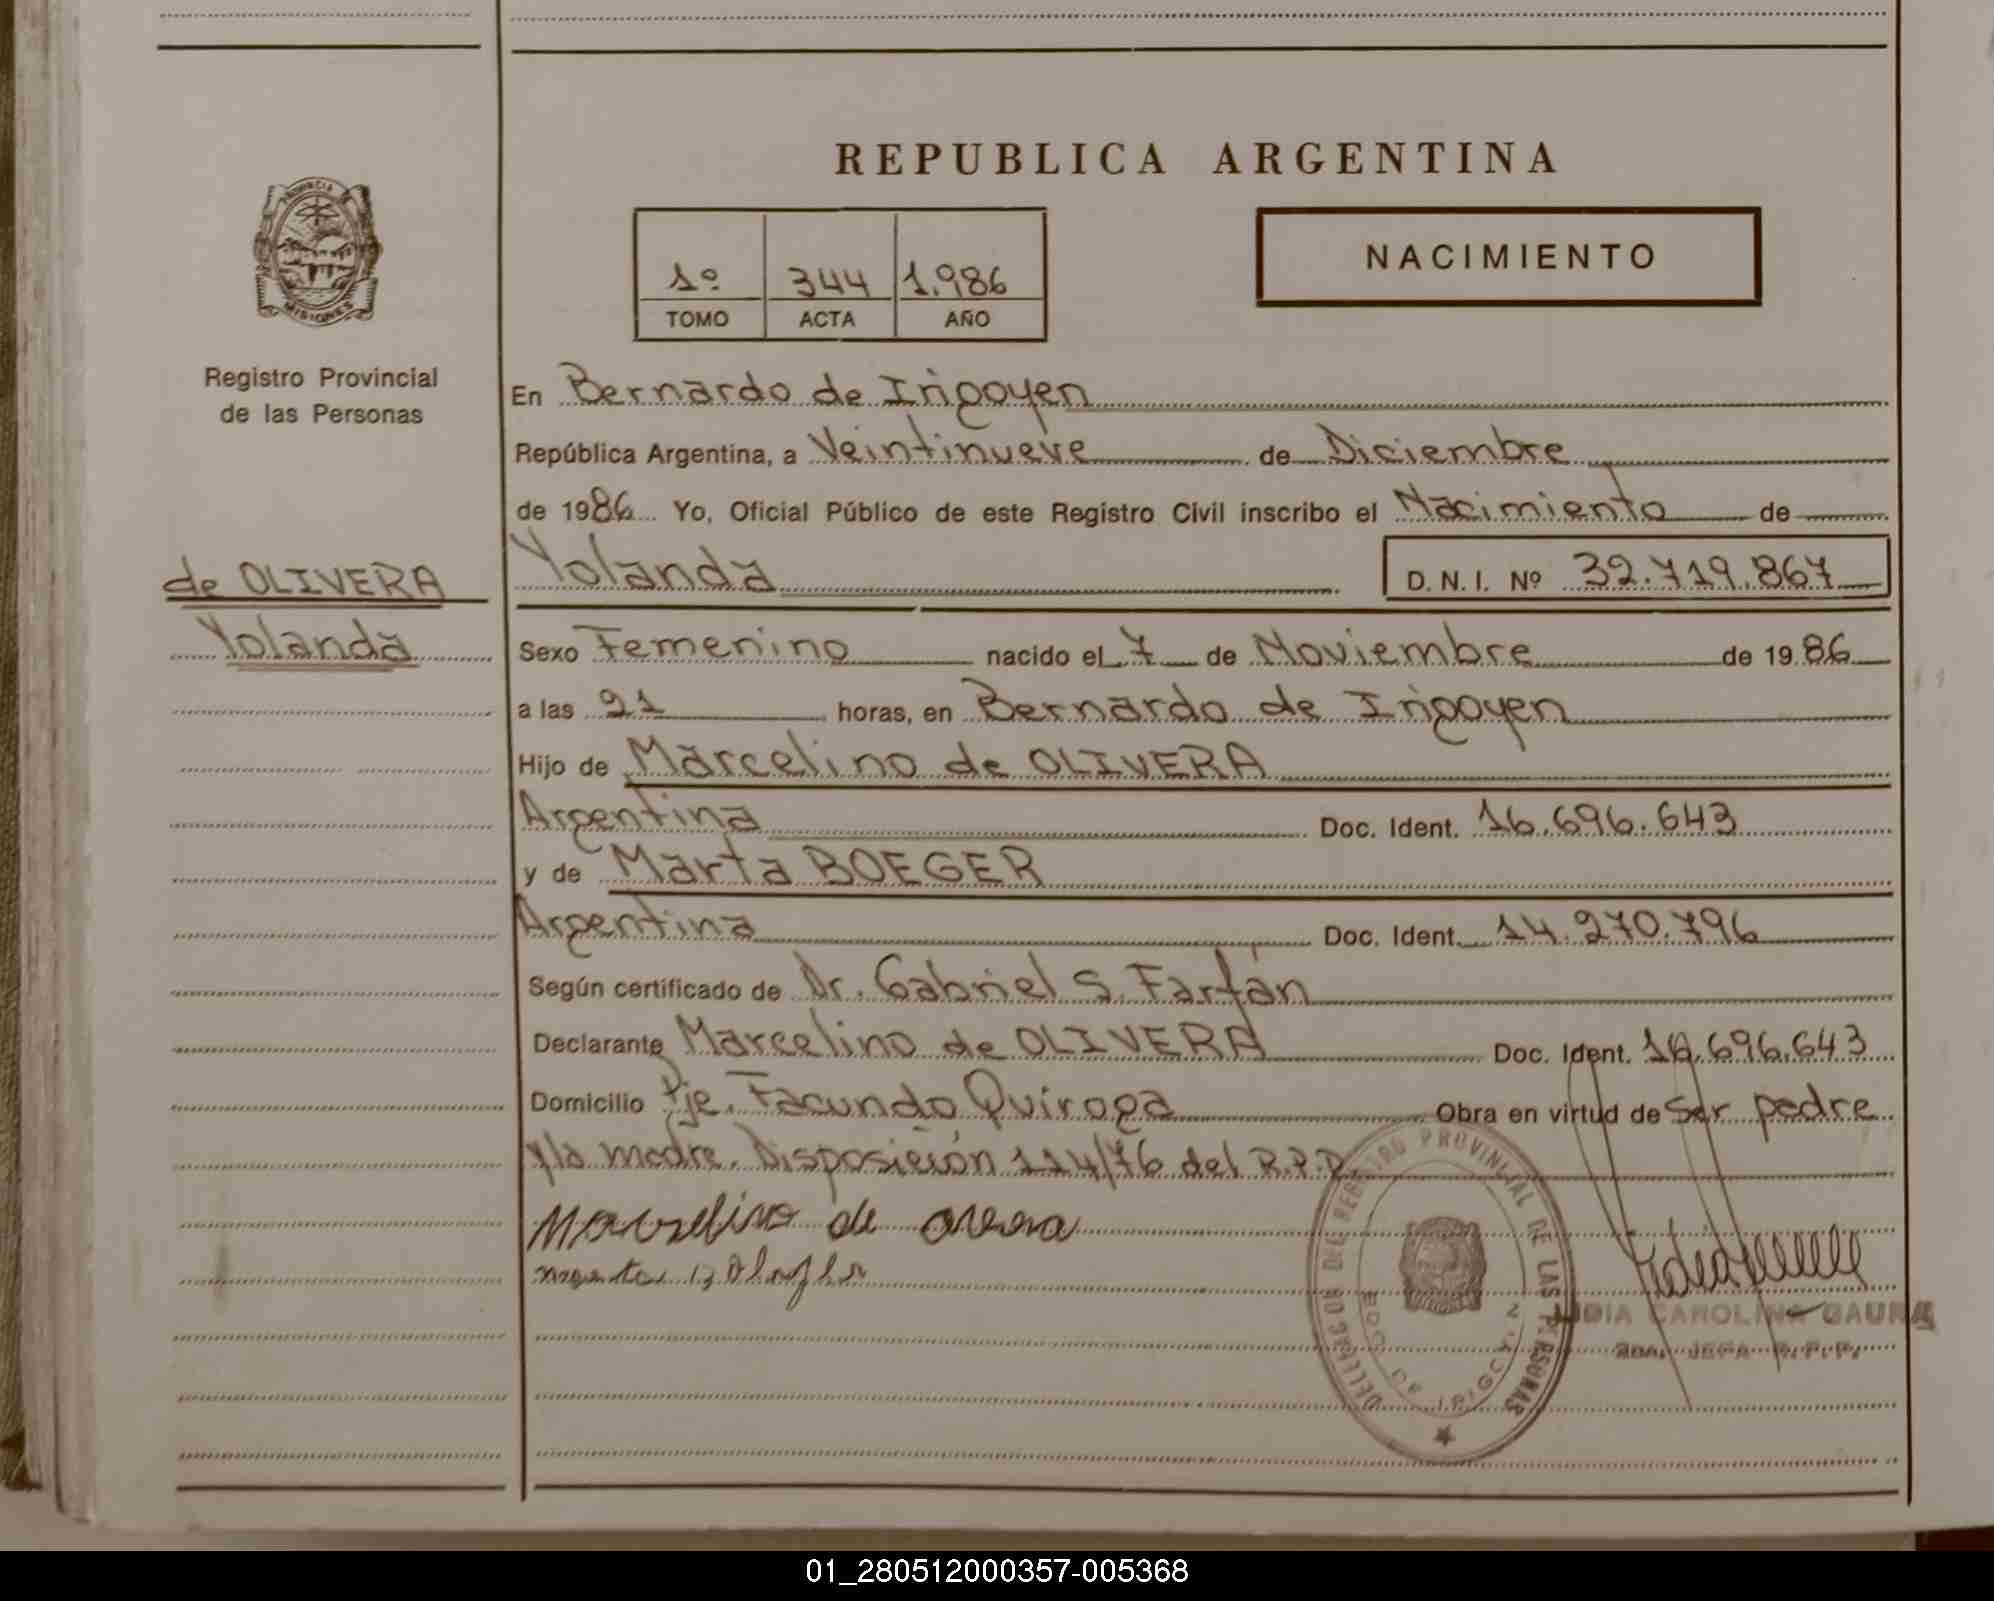 REPUBLICA ARGENTINA
PROVINCIA
MISIONES
Registro Provincial
de las Personas
1º 344 1.986
TOMO ACTA AÑO
NACIMIENTO
En Bernardo de Irigoyen
República Argentina, a Veintinueve de Diciembre
de 1986 Yo, Oficial Público de este Registro Civil inscribo el Nacimiento de
de OLIVERA
Yolanda
Yolanda D. N. I. Nº 32.719.867
Sexo Femenino nacido el 7 de Noviembre de 1986
a las 21 horas, en Bernardo de Irigoyen
Hijo de Marcelino de OLIVERA
Argentina Doc. Ident. 16.696.643
y de Marta BOEGER
Argentina Doc. Ident. 14.270.796
Según certificado de Dr. Gabriel S. Farfán
Declarante Marcelino de OLIVERA Doc. Ident. 16.696.643
Domicilio Pje. Facundo Quiroga Obra en virtud de Ser padre
y/o madre. Disposición 114/76 del R.P.P.
Marcelino de
DEL REGISTRO PROVINCIAL DE LAS PERSONAS
BDO. DE IRIGOYEN
LIDIA CAROLINA GAUNA
JEFA R.P.P.
01_280512000357-005368